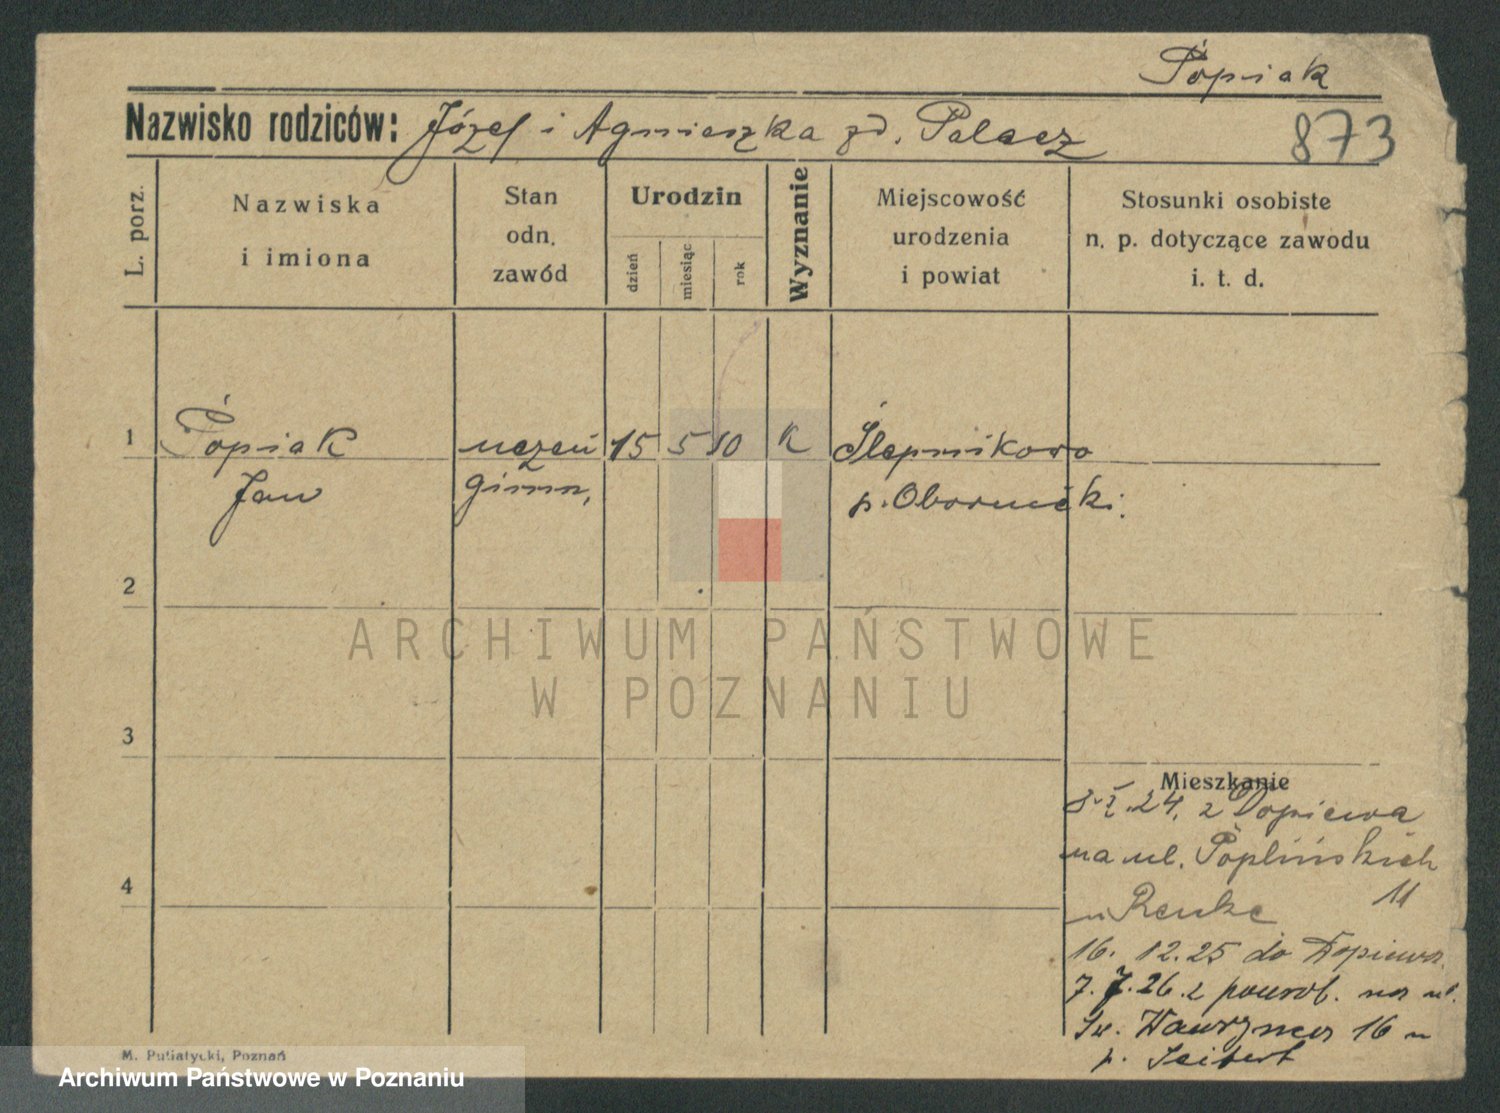 Popiak
Nazwisko rodziców: Józef i Agnieszka zd. Palacz
873
L. porz.
Nazwiska
i imiona
Stan
odn.
zawód
Urodzin
dzień
miesiąc
rok
Wyznanie
Miejscowość
urodzenia
i powiat
Stosunki osobiste
n. p. dotyczące zawodu
i. t. d.
1
Popiak
Jan
uczeń
gimn.
15 5 10
K
Ślepuikowo
p. Obornicki.
2
ARCHIWUM PAŃSTWOWE
W POZNANIU
3
Mieszkanie
24. z Dopiewa
na ul. Poplińskich
11
u Renke
4
16. 12.25 do Dopiewa
7. 7.26. z powrot. na ul.
Św. Wawrzyńca 16 u
p. Seibert
M. Putiatycki, Poznań
Archiwum Państwowe w Poznaniu